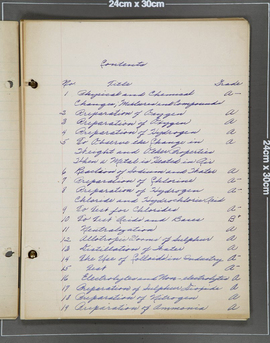 24cm x 30cm
Contents
No. Title Grade
1 Physical and Chemical A-
Changes, Mixtures and Compounds
2 Preparation of Oxygen A
3 Preparation of Oxygen A
4 Preparation of Hydrogen A
5 To Observe the Change in A
Weight and Other Properties
When a Metal is Heated in Air
6 of Sodium and Water A
7 Preparation of Chlorine A-
8 Preparation of Hydrogen A-
Chloride and Hydrochloric Acid
9 To Test for Chlorides A-
10 To Test Acids and Bases B+
11 Neutralization A
12 Allotropic Forms of Sulphur A
13 Distillation of Water A-
14 The Use of Colloids in Industry A-
15 Test A-
16 Electrolytes and Non-electrolytes A-
17 Preparation of Sulphur Dioxide A-
18 Preparation of Nitrogen A-
19 Preparation of Ammonia A-
24cm x 30cm